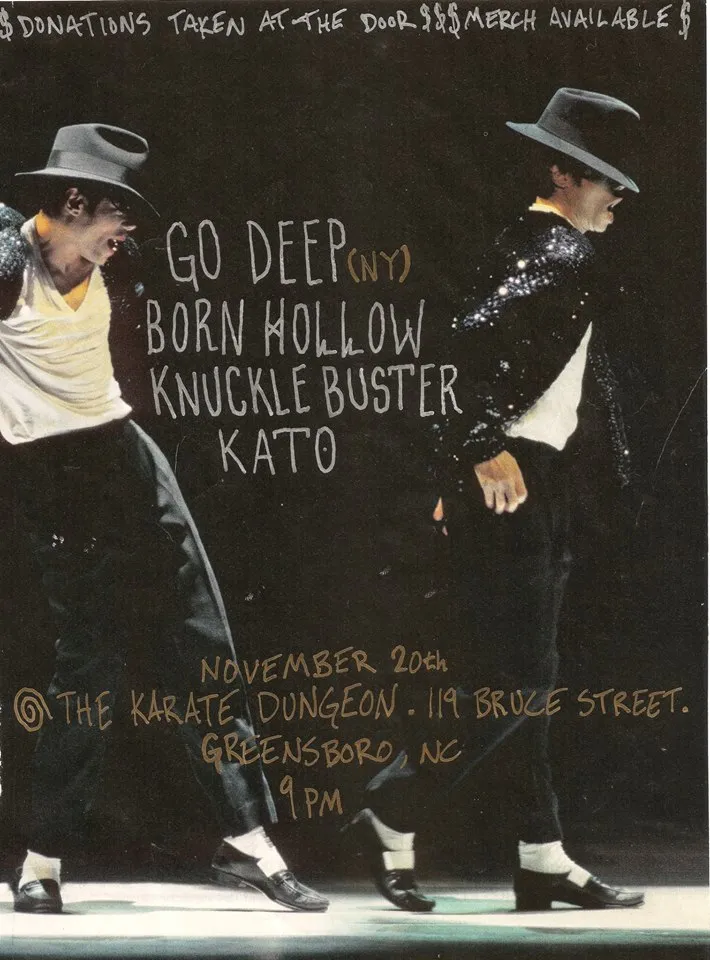 $ DONATIONS TAKEN AT THE DOOR $$$ MERCH AVAILABLE $
GO DEEP (NY)
BORN HOLLOW
KNUCKLE BUSTER
KATO
NOVEMBER 20th
@ THE KARATE DUNGEON. 119 BRUCE STREET.
GREENSBORO, NC
9 PM